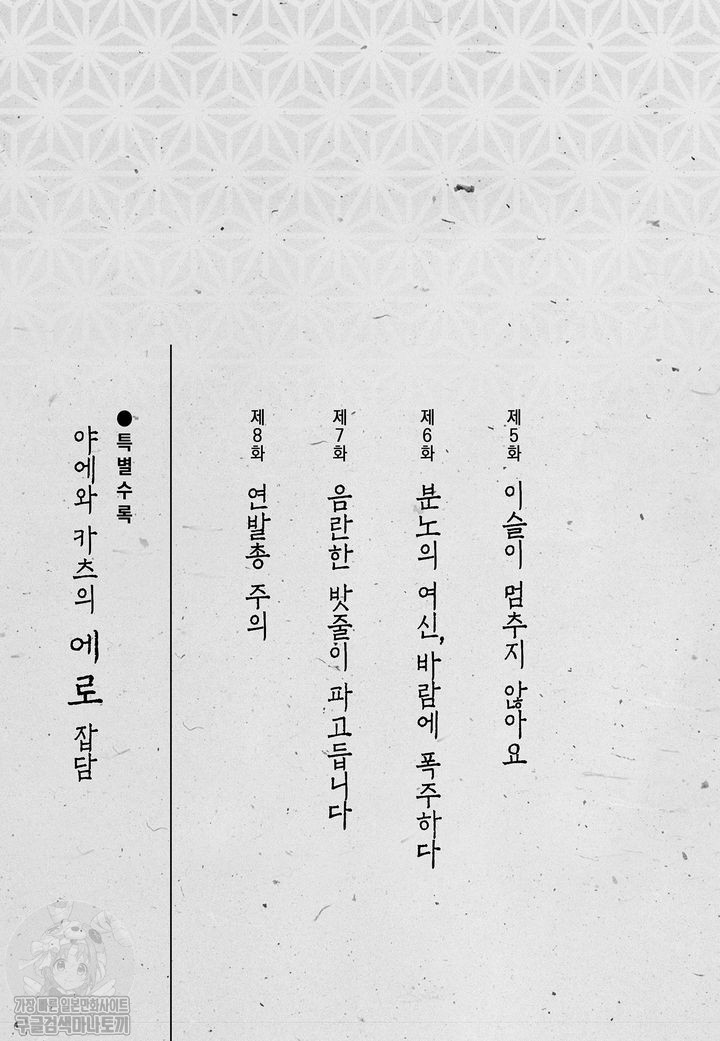 제5화 이슬이 멈추지 않아요
제6화 분노의 여신, 바람에 폭주하다
제7화 음란한 밧줄이 파고듭니다
제8화 연발총 주의
●특별수록
야에와 카츠의 에로 잡담
가장 빠른 일본만화사이트
구글검색마나토끼